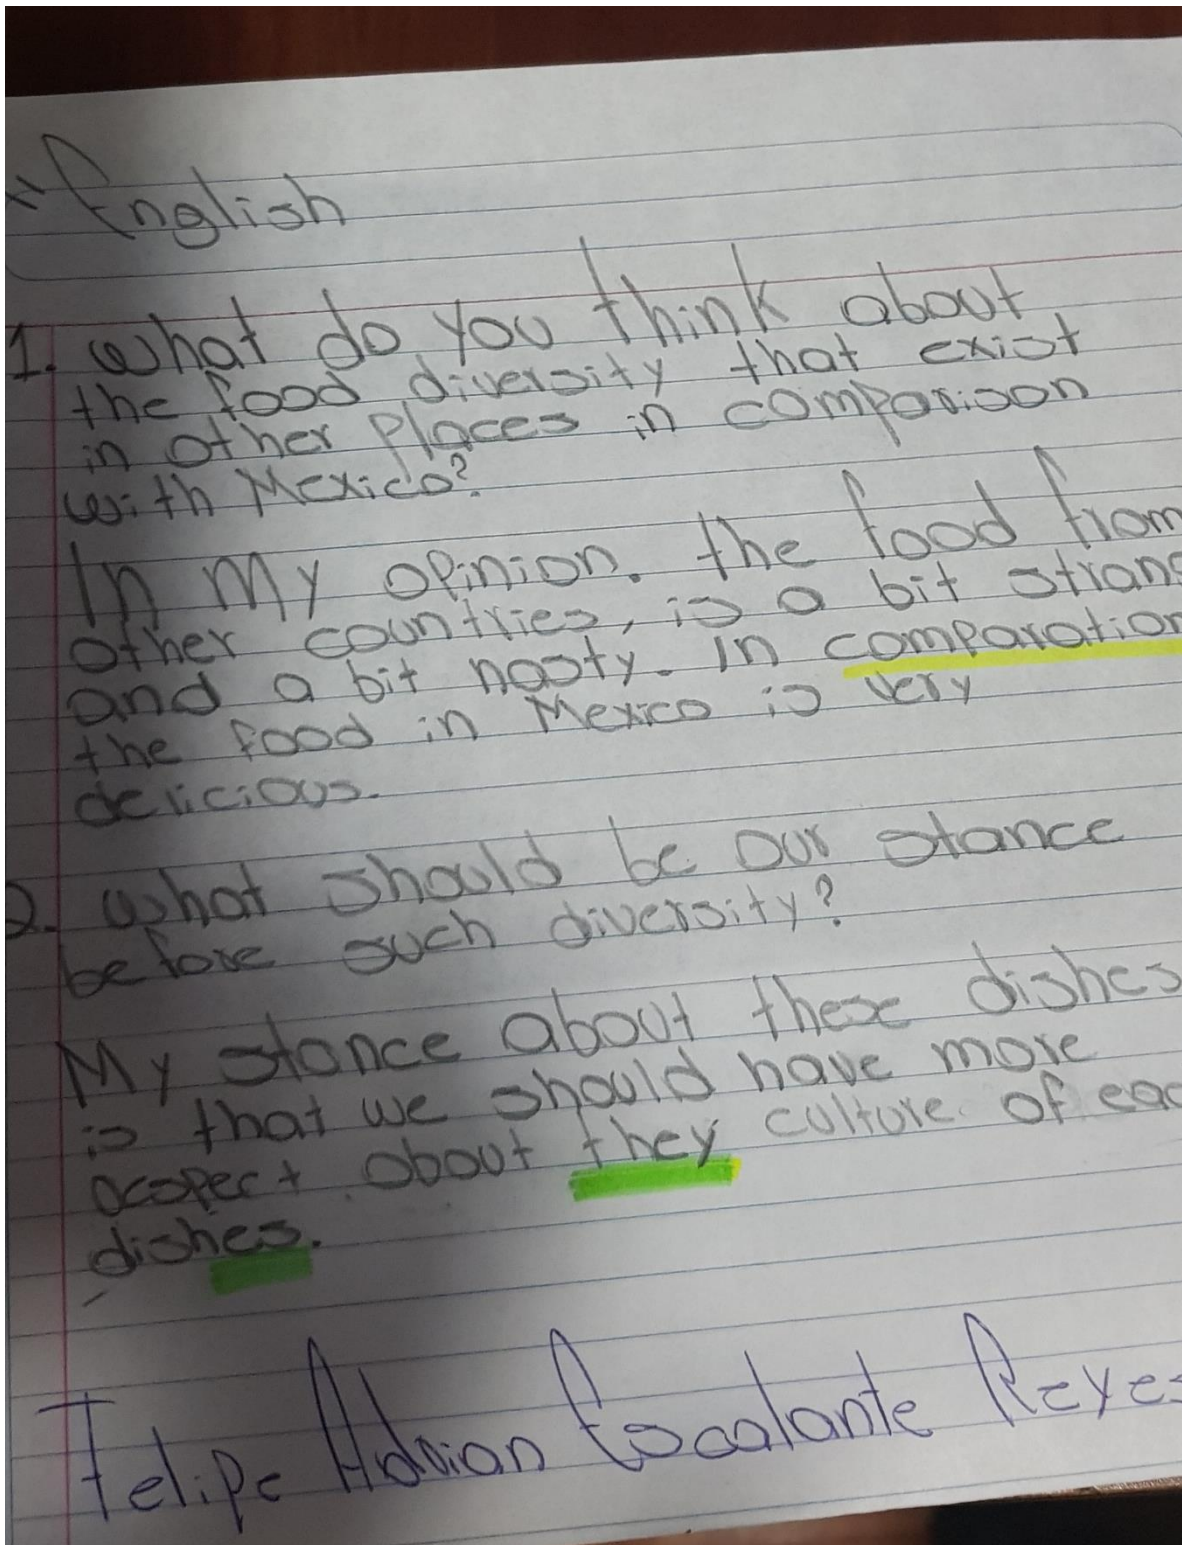 English
1. What do you think about
the food diversity that exist
in other places in comparison
with Mexico?
In my opinion. the food from
other countries, is a bit strang
and a bit nasty. In comparation
the food in Mexico is very
delicious.
2. What should be our stance
before such diversity?
My stance about these dishes
is that we should have more
acspect about they culture of eac
dishes.
Felipe Adrian Escalante Reyes